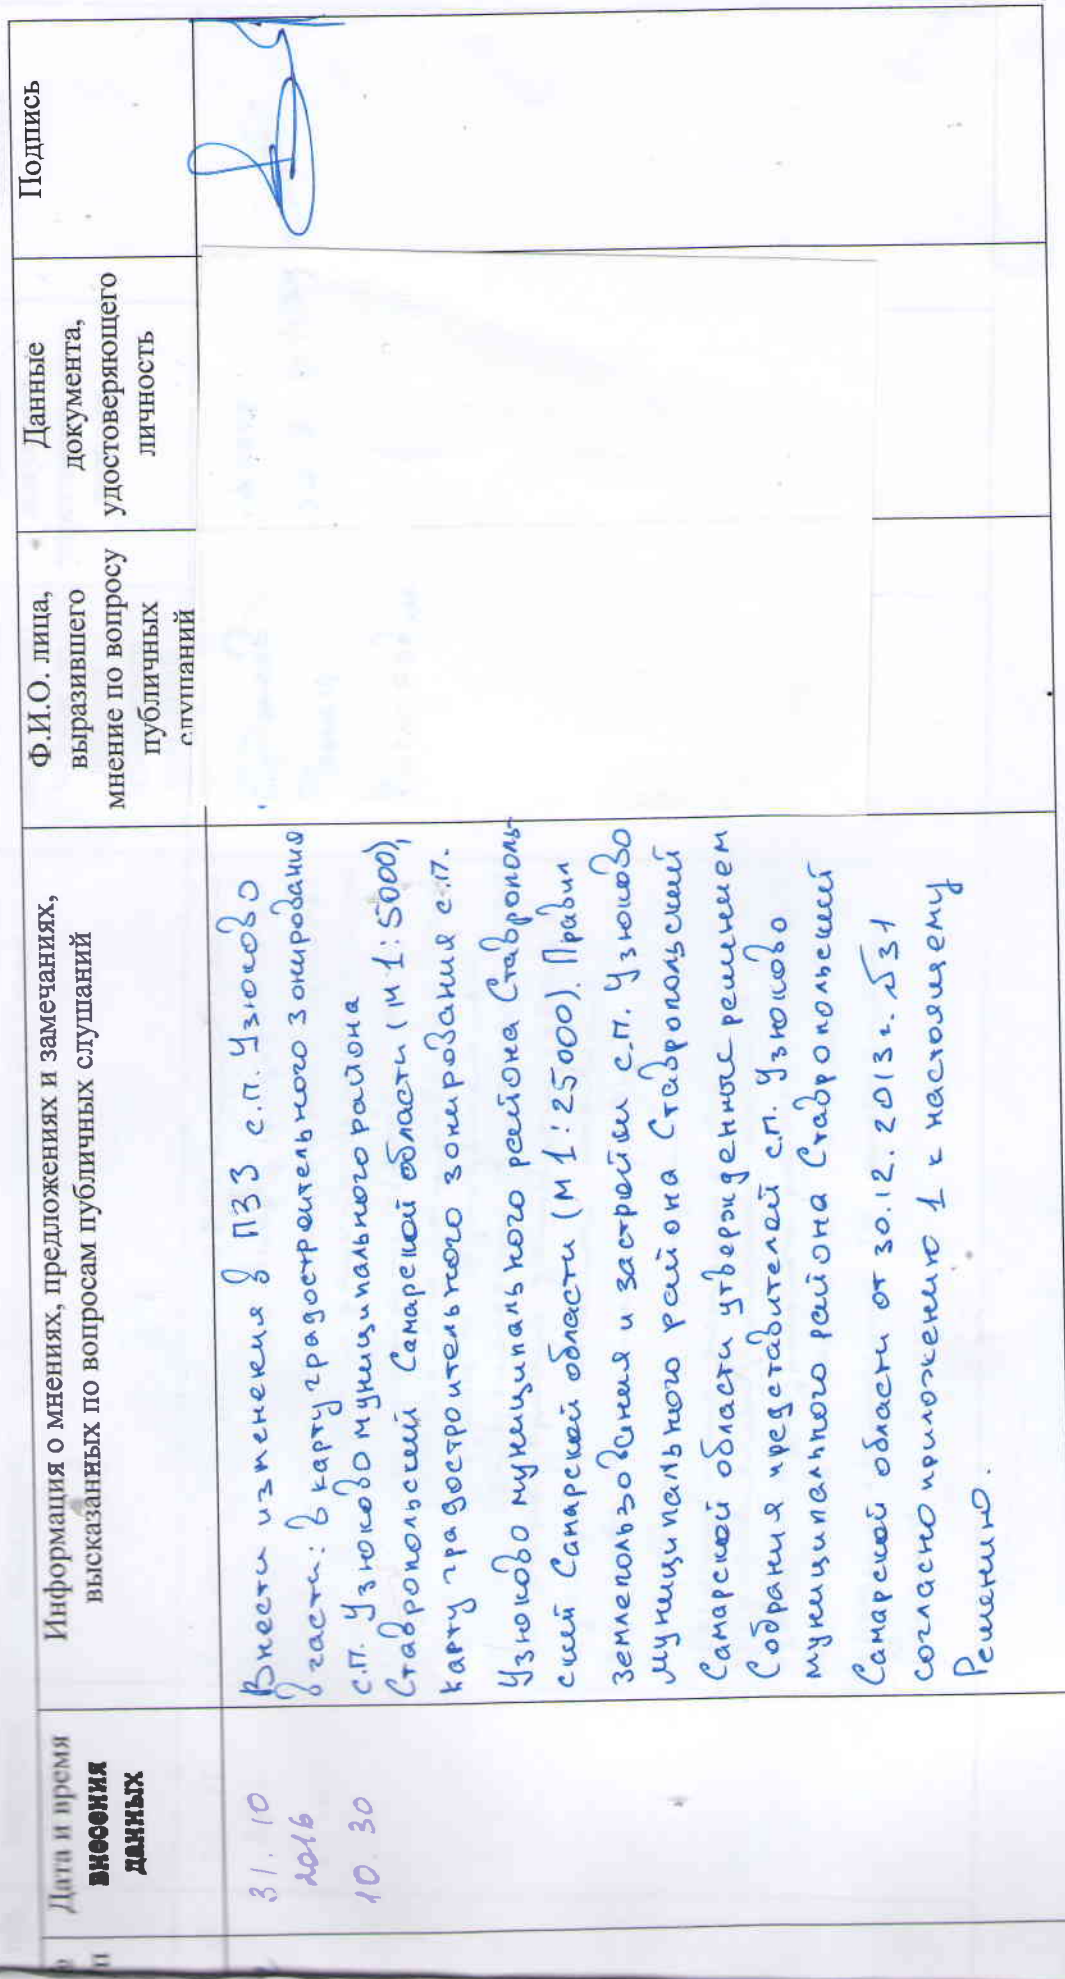 Дата и время
внесения
данных
Информация о мнениях, предложениях и замечаниях,
высказанных по вопросам публичных слушаний
Ф.И.О. лица,
выразившего
мнение по вопросу
публичных
слушаний
Данные
документа,
удостоверяющего
личность
Подпись
31.10
2016
10.30
Внести изменения в ПЗЗ с.п. Узюково
в части: в карту градостроительного зонирования
с.п. Узюково муниципального района
Ставропольский Самарской области (М 1:5000),
карту градостроительного зонирования с.п.
Узюково муниципального района Ставрополь-
ский Самарской области (М 1:25000). Правил
землепользования и застройки с.п. Узюково
муниципального района Ставропольский
Самарской области утвержденные решением
Собрания представителей с.п. Узюково
муниципального района Ставропольский
Самарской области от 30.12.2013 г. №31
согласно приложению 1 к настоящему
Решению.